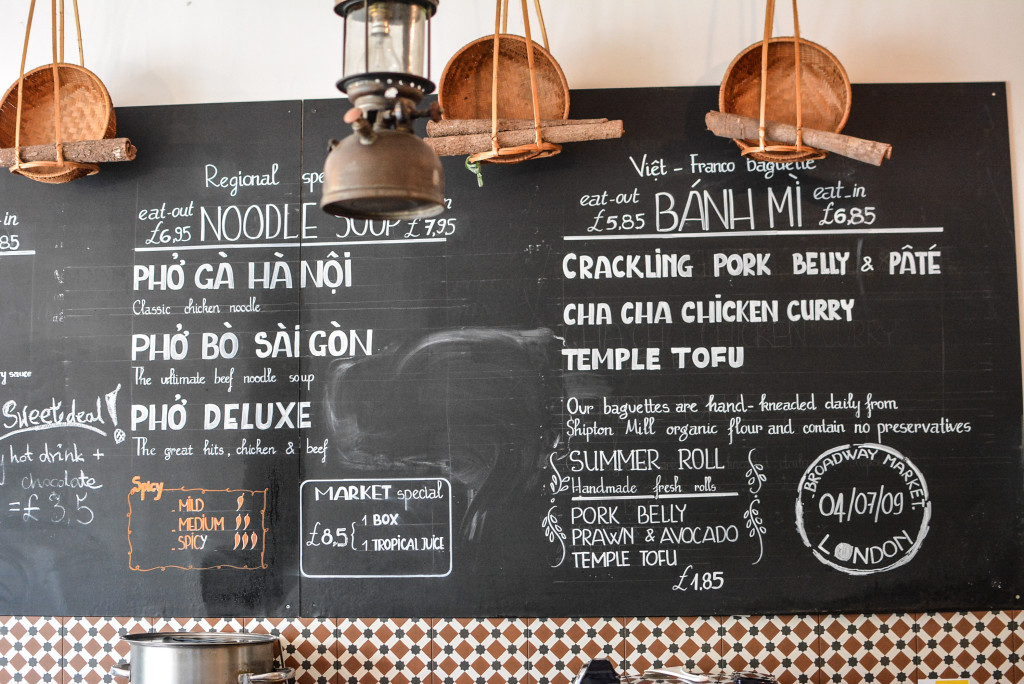 Regional
eat-out
£6,95
NOODLE SOUP
£7,95
PHỞ GÀ HÀ NỘI
Classic chicken noodle
PHỞ BÒ SÀI GÒN
The ultimate beef noodle soup
PHỞ DELUXE
The great hits, chicken & beef
Spicy
MILD
MEDIUM
SPICY
MARKET special
£8,5 { 1 BOX
1 TROPICAL JUICE
85
Sweet deal!
hot drink +
chocolate
= £ 3,5
Việt - Franco baguette
eat-out
£5,85
BÁNH MÌ
eat-in
£6,85
CRACKLING PORK BELLY & PÂTÉ
CHA CHA CHICKEN CURRY
TEMPLE TOFU
Our baguettes are hand-kneaded daily from
Shipton Mill organic flour and contain no preservatives
SUMMER ROLL
Handmade fresh rolls
PORK BELLY
PRAWN & AVOCADO
TEMPLE TOFU
£1.85
BROADWAY MARKET
04/07/09
LONDON